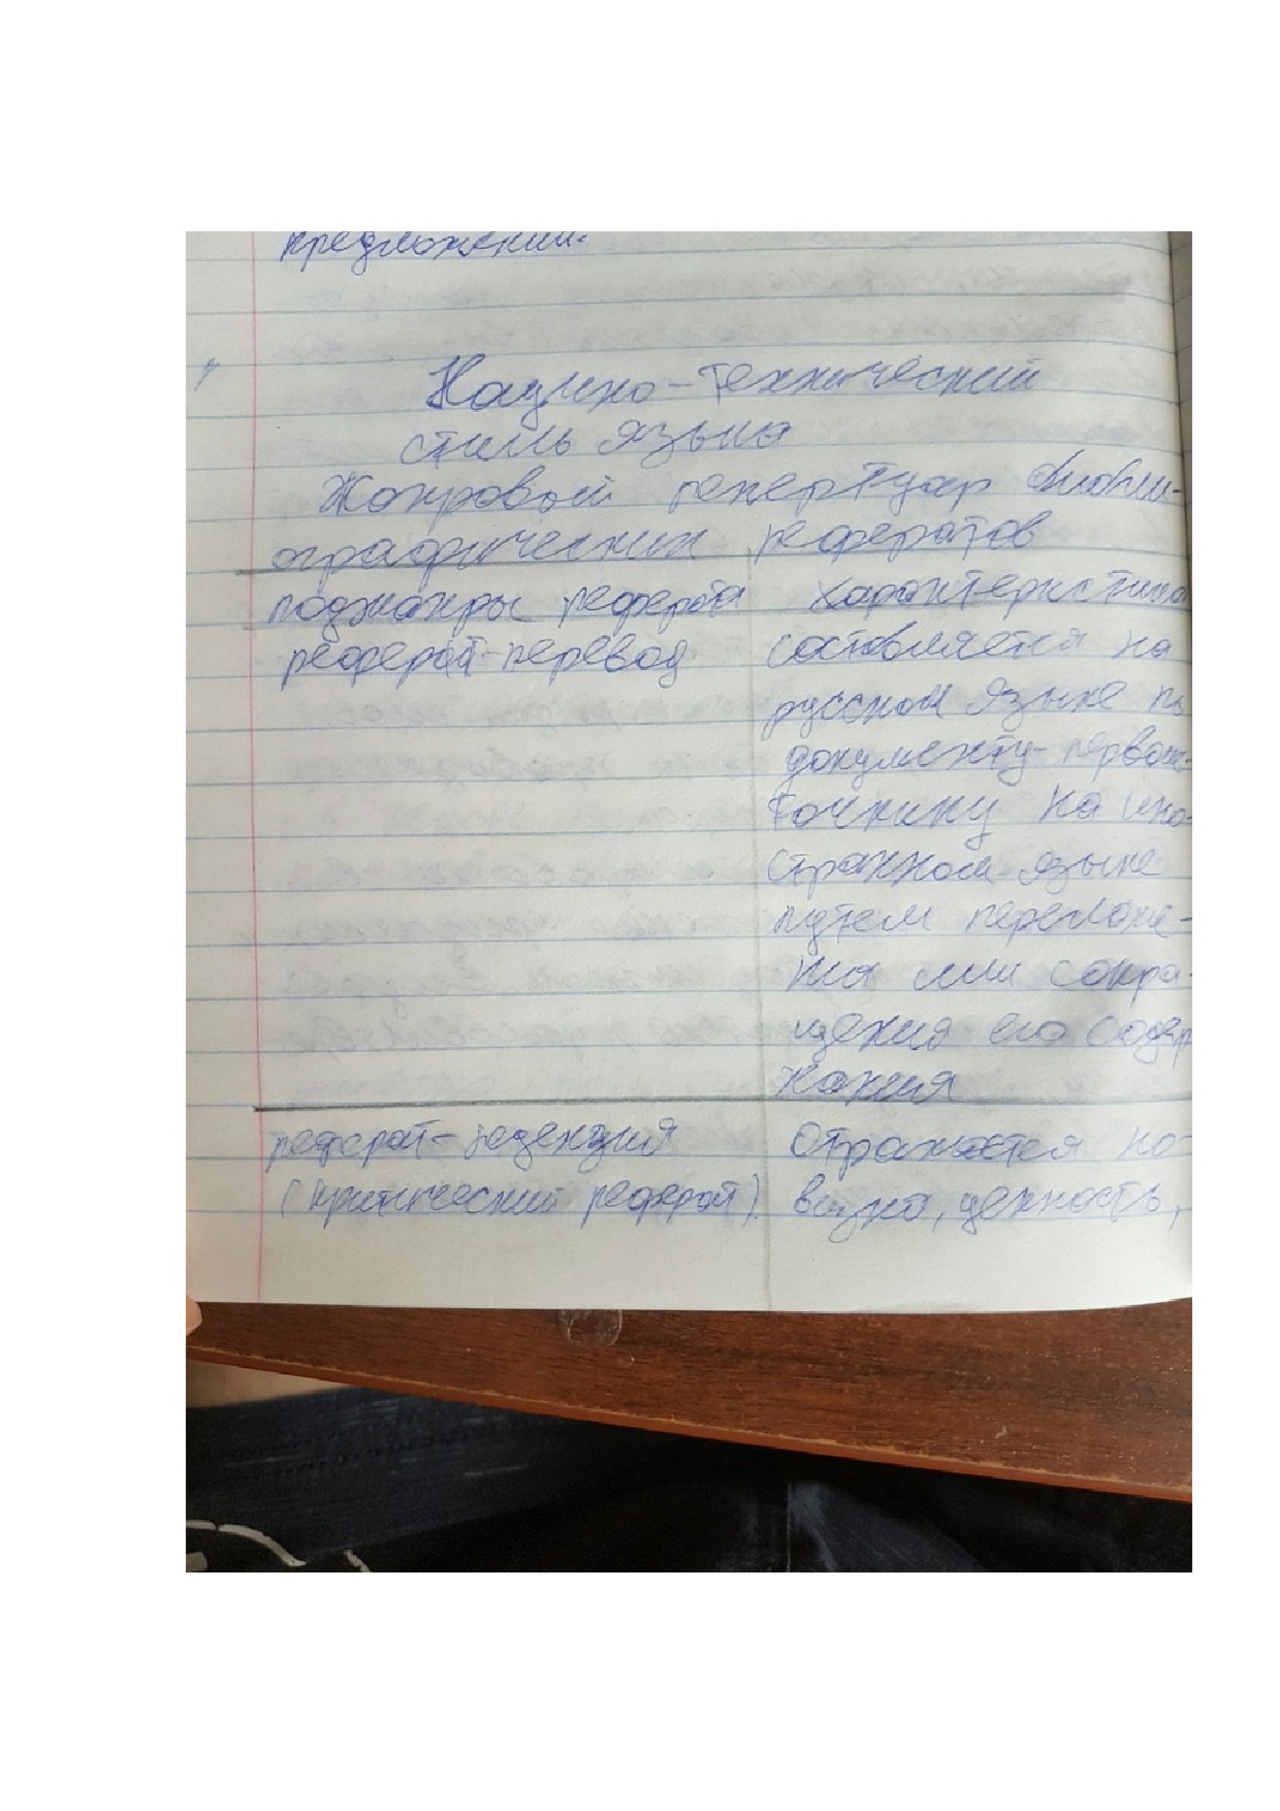 предложении.
Научно-технический
стиль языка
Жанровый репертуар библи-
ографических рефератов
поджанры реферата характеристика
реферат-перевод составляется на
русском языке по
документу-первоис-
точнику на ино-
странном языке
путем переложе-
ния или сокра-
щения его содер
жания
реферат-рецензия Отражается но-
(критический реферат). визна, ценность,